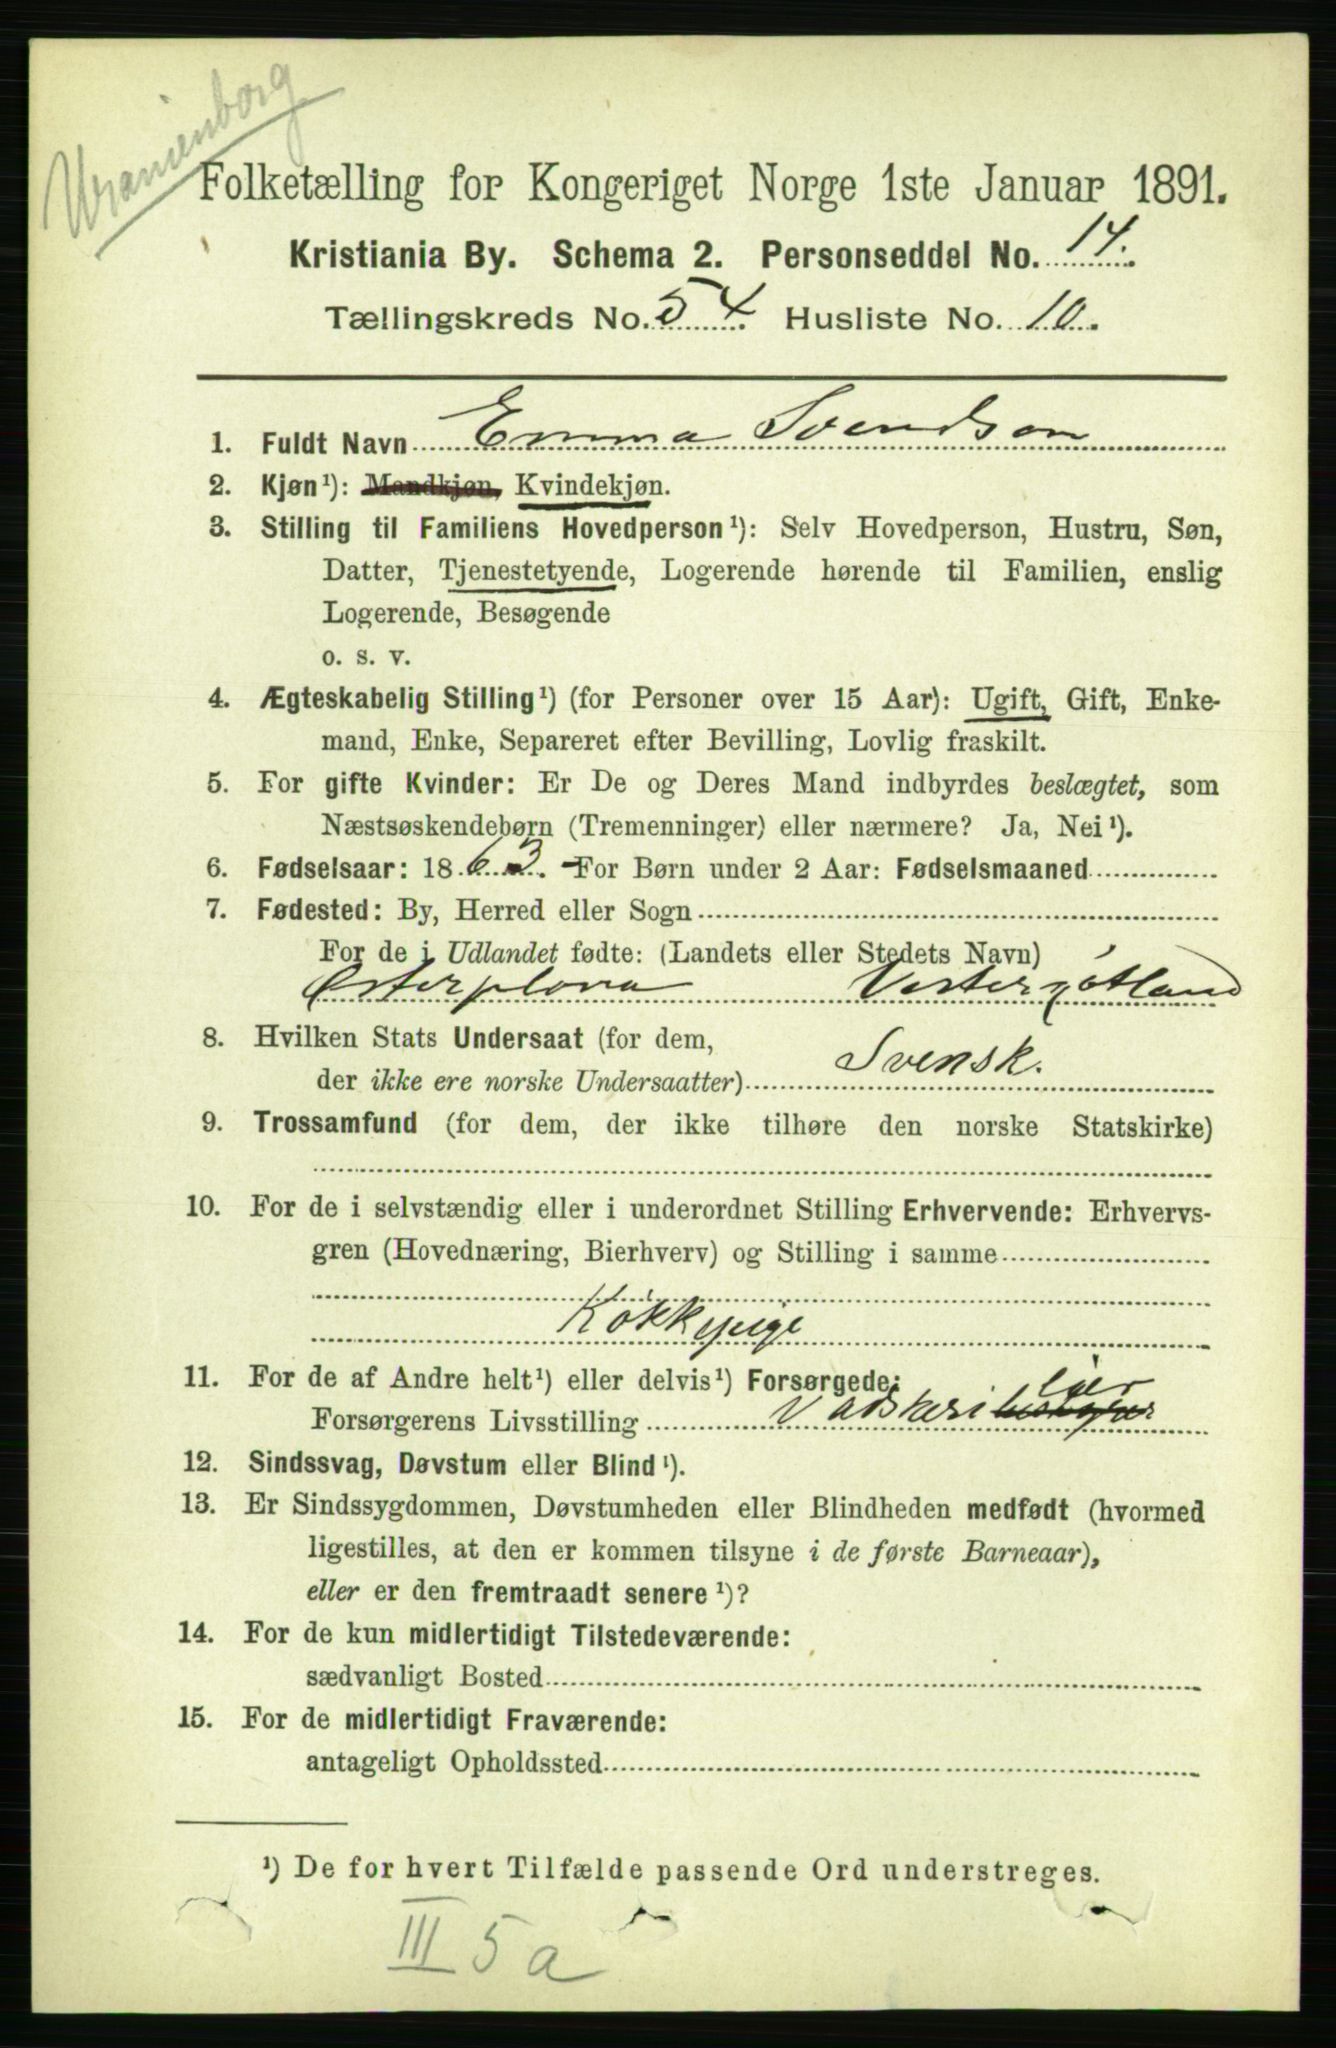 Uranienborg
Folketælling for Kongeriget Norge 1ste Januar 1891.
Kristiania By. Schema 2. Personseddel No. 14.
Tællingskreds No. 54. Husliste No. 10.
1. Fuldt Navn Emma Svendsen
2. Kjøn¹): Mandkjøn, Kvindekjøn.
3. Stilling til Familiens Hovedperson¹): Selv Hovedperson, Hustru, Søn,
Datter, Tjenestetyende, Logerende hørende til Familien, enslig
Logerende, Besøgende
o. s. v.
4. Ægteskabelig Stilling¹) (for Personer over 15 Aar): Ugift, Gift, Enke-
mand, Enke, Separeret efter Bevilling, Lovlig fraskilt.
5. For gifte Kvinder: Er De og Deres Mand indbyrdes beslægtet, som
Næstsøskendebørn (Tremenninger) eller nærmere? Ja, Nei¹).
6. Fødselsaar: 1863. For Børn under 2 Aar: Fødselsmaaned
7. Fødested: By, Herred eller Sogn
For de i Udlandet fødte: (Landets eller Stedets Navn)
Østerplana Vestergötland
8. Hvilken Stats Undersaat (for dem,
der ikke ere norske Undersaatter) Svensk.
9. Trossamfund (for dem, der ikke tilhøre den norske Statskirke)
10. For de i selvstændig eller i underordnet Stilling Erhvervende: Erhvervs-
gren (Hovednæring, Bierhverv) og Stilling i samme
Kökkepige
11. For de af Andre helt¹) eller delvis¹) Forsørgede:
Forsørgerens Livsstilling Vadskeri
12. Sindssvag, Døvstum eller Blind¹).
13. Er Sindssygdommen, Døvstumheden eller Blindheden medfødt (hvormed
ligestilles, at den er kommen tilsyne i de første Barneaar),
eller er den fremtraadt senere¹)?
14. For de kun midlertidigt Tilstedeværende:
sædvanligt Bosted
15. For de midlertidigt Fraværende:
antageligt Opholdssted
¹) De for hvert Tilfælde passende Ord understreges.
III 5 a